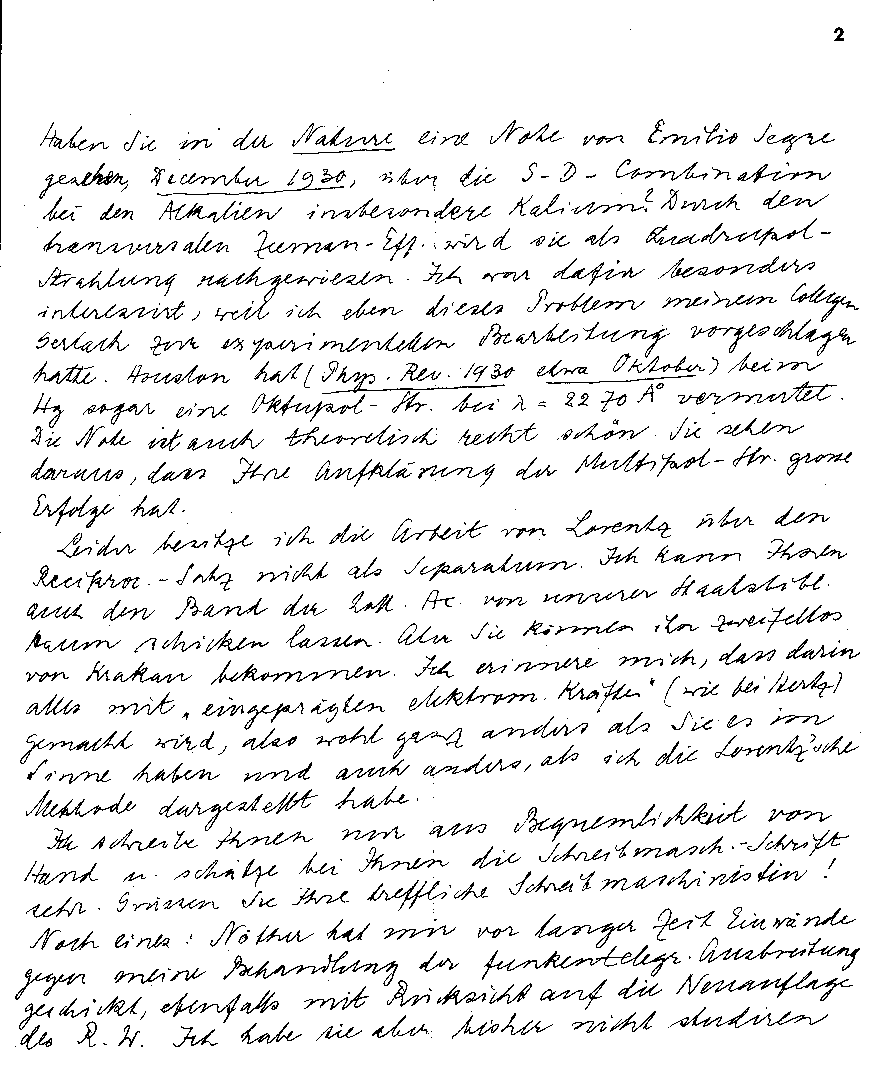 2
Haben Sie in der Nature eine Note von Emilio Segre
gesehen, December 1930, über die S-D-Combination
bei den Alkalien insbesondere Kalium? Durch den
transversalen Zeeman-Eff. wird sie als Quadrupol-
Strahlung nachgewiesen. Ich war dafür besonders
interessirt, weil ich eben dieses Problem meinem Collegen
Gerlach zur experimentellen Bearbeitung vorgeschlagen
hatte. Houston hat (Phys. Rev. 1930 etwa Oktober) beim
Hg sogar eine Oktupol-Str. bei λ = 2270 Å vermutet.
Die Note ist auch theoretisch recht schön. Sie sehen
daraus, dass Ihre Aufklärung der Multipol-Str. grosse
Erfolge hat.
Leider besitze ich die Arbeit von Lorentz über den
Reciproc.-Satz nicht als Separatum. Ich kann Ihnen
auch den Band der Ac. von unserer Staatsbibl.
kaum schicken lassen. Aber Sie können ihn zweifellos
von Krakau bekommen. Ich erinnere mich, dass darin
alles mit „eingeprägten elektrom. Kräften" (wie bei Hertz)
gemacht wird, also wohl ganz anders als Sie es im
Sinne haben und auch anders, als ich die Lorentz'sche
Methode dargestellt habe.
Ich schreibe Ihnen nur aus Bequemlichkeit von
Hand u. schätze bei Ihnen die Schreibmasch.-Schrift
sehr. Grüssen Sie Ihre treffliche Schreibmaschinistin!
Noch eines: Nöther hat mir vor langer Zeit Einwände
gegen meine Behandlung der funkentelegr. Ausbreitung
geschickt, ebenfalls mit Rücksicht auf die Neuauflage
des R. W. Ich habe sie aber bisher nicht studiren